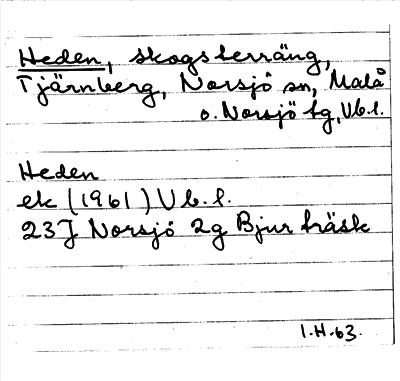 Heden, skogsterräng,
Tjärnberg, Norsjö sn, Malå
o. Norsjö tg, Vb.l.
Heden
ek (1961) Vb.l.
23J Norsjö 2g Bjurträsk
1.H.63.